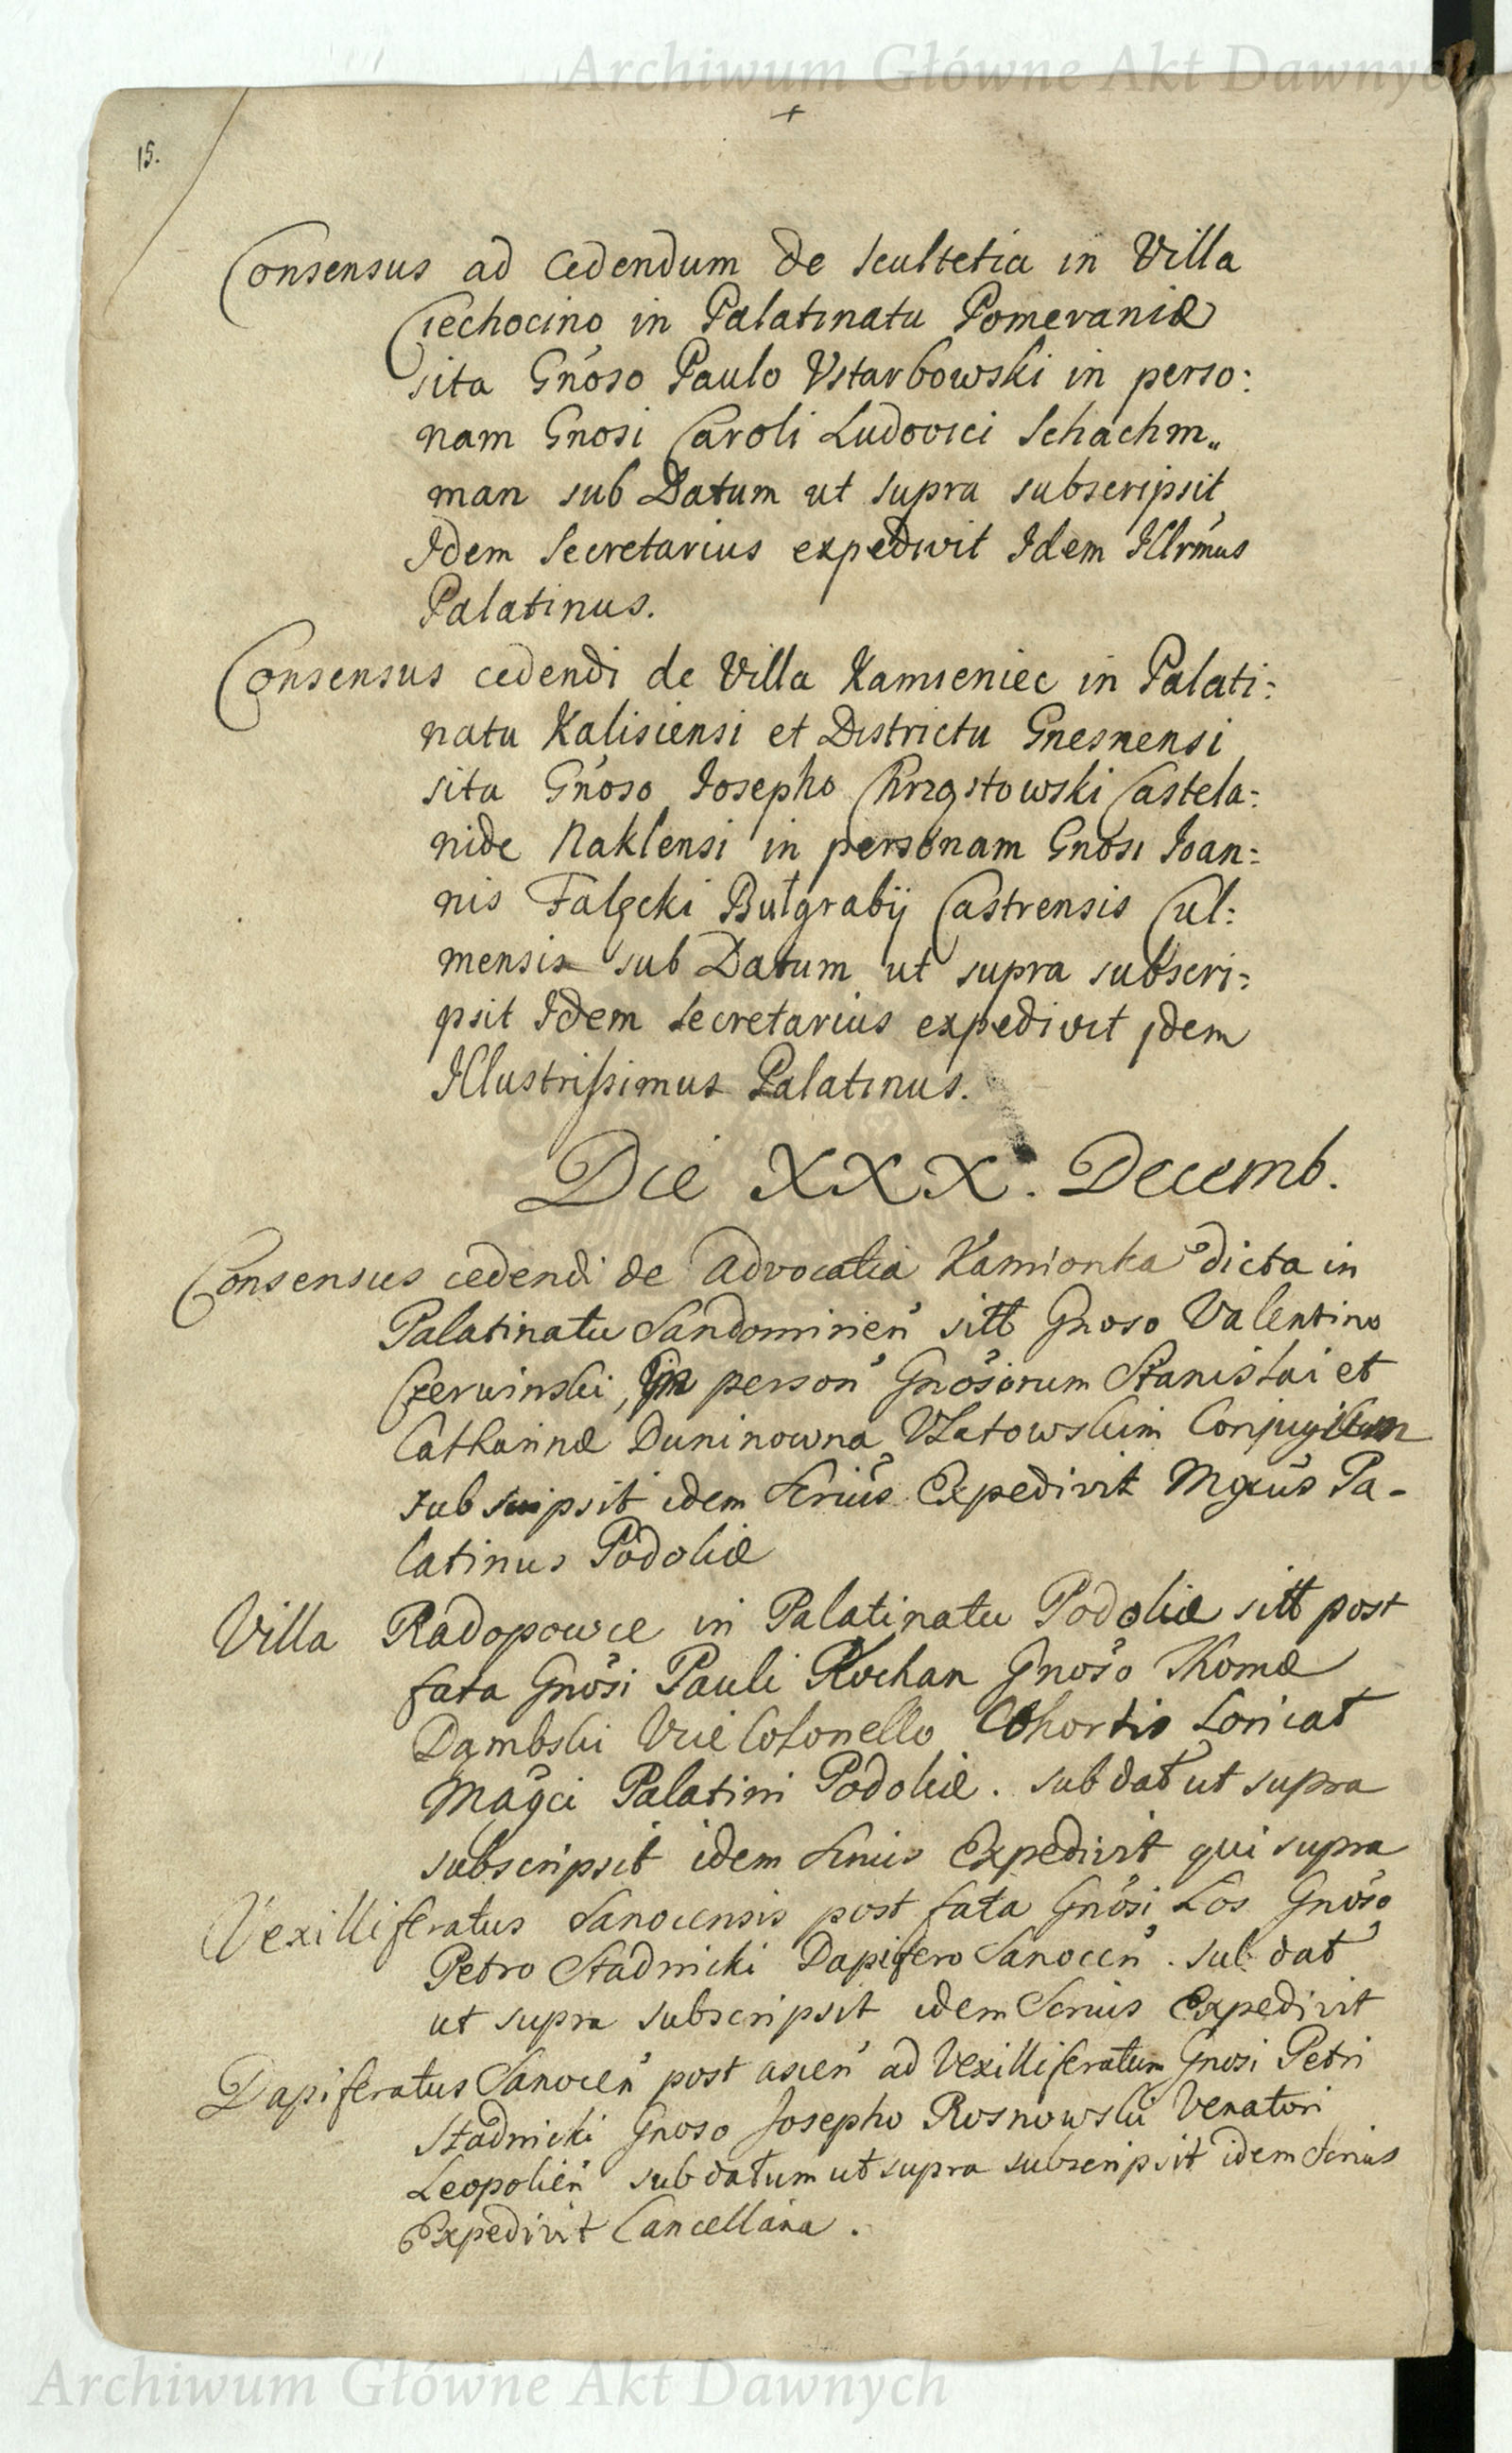 Archiwum Główne Akt Dawnych
15.
Consensus ad cedendum de scultetia in Villa
Ciechocino in Palatinatu Pomeraniæ
sita Gnoso Paulo Ustarbowski in perso:
nam Gnosi Caroli Ludovici Schachm„
man sub Datum ut supra subscripsit
Idem Secretarius expedivit Idem Illrmus
Palatinus.
Consensus cedendi de Villa Kamieniec in Palati:
natu Kalisiensi et Districtu Gnesnensi
sita Gnoso Josepho Chrząstowski Castela:
nide Naklensi in personam Gnosi Joan:
nis Falęcki Butgrabij Castrensis Cul:
mensis sub Datum ut supra subscri:
psit Idem Secretarius expedivit jdem
Illustrissimus Palatinus.
Die XXX. Decemb.
Consensus cedendi de Advocatia Kamionka dicta in
Palatinatu Sandomirien sitt Gnoso Valentino
Czerwinski, in person Gnosorum Stanislai et
Catharinæ Duninowna Conjugum
subscripsit idem Srius Expedivit Mgcus Pa-
latinus Podoliæ
Villa Radopowce in Palatinatu Podoliæ sitt post
fata Gnosi Pauli Kochan Gnoso Thomæ
Dąmbski Vice Colonello Cohortis Loricat
Magci Palatini Podoliæ. sub dat ut supra
subscripsit idem Srius Expedivit qui supra
Vexilliferatus Sanocensis post fata Gnosi Los Gnoso
Petro Stadnicki Dapifero Sanocen. sub dat
ut supra subscripsit idem Srius Expedivit
Dapiferatus Sanocen post ascen ad Vexilliferatum Gnosi Petri
Stadnicki Gnoso Josepho Rosnowski Venatori
Leopolien sub datum ut supra subscripsit idem Srius
Expedivit Cancellaria.
Archiwum Główne Akt Dawnych